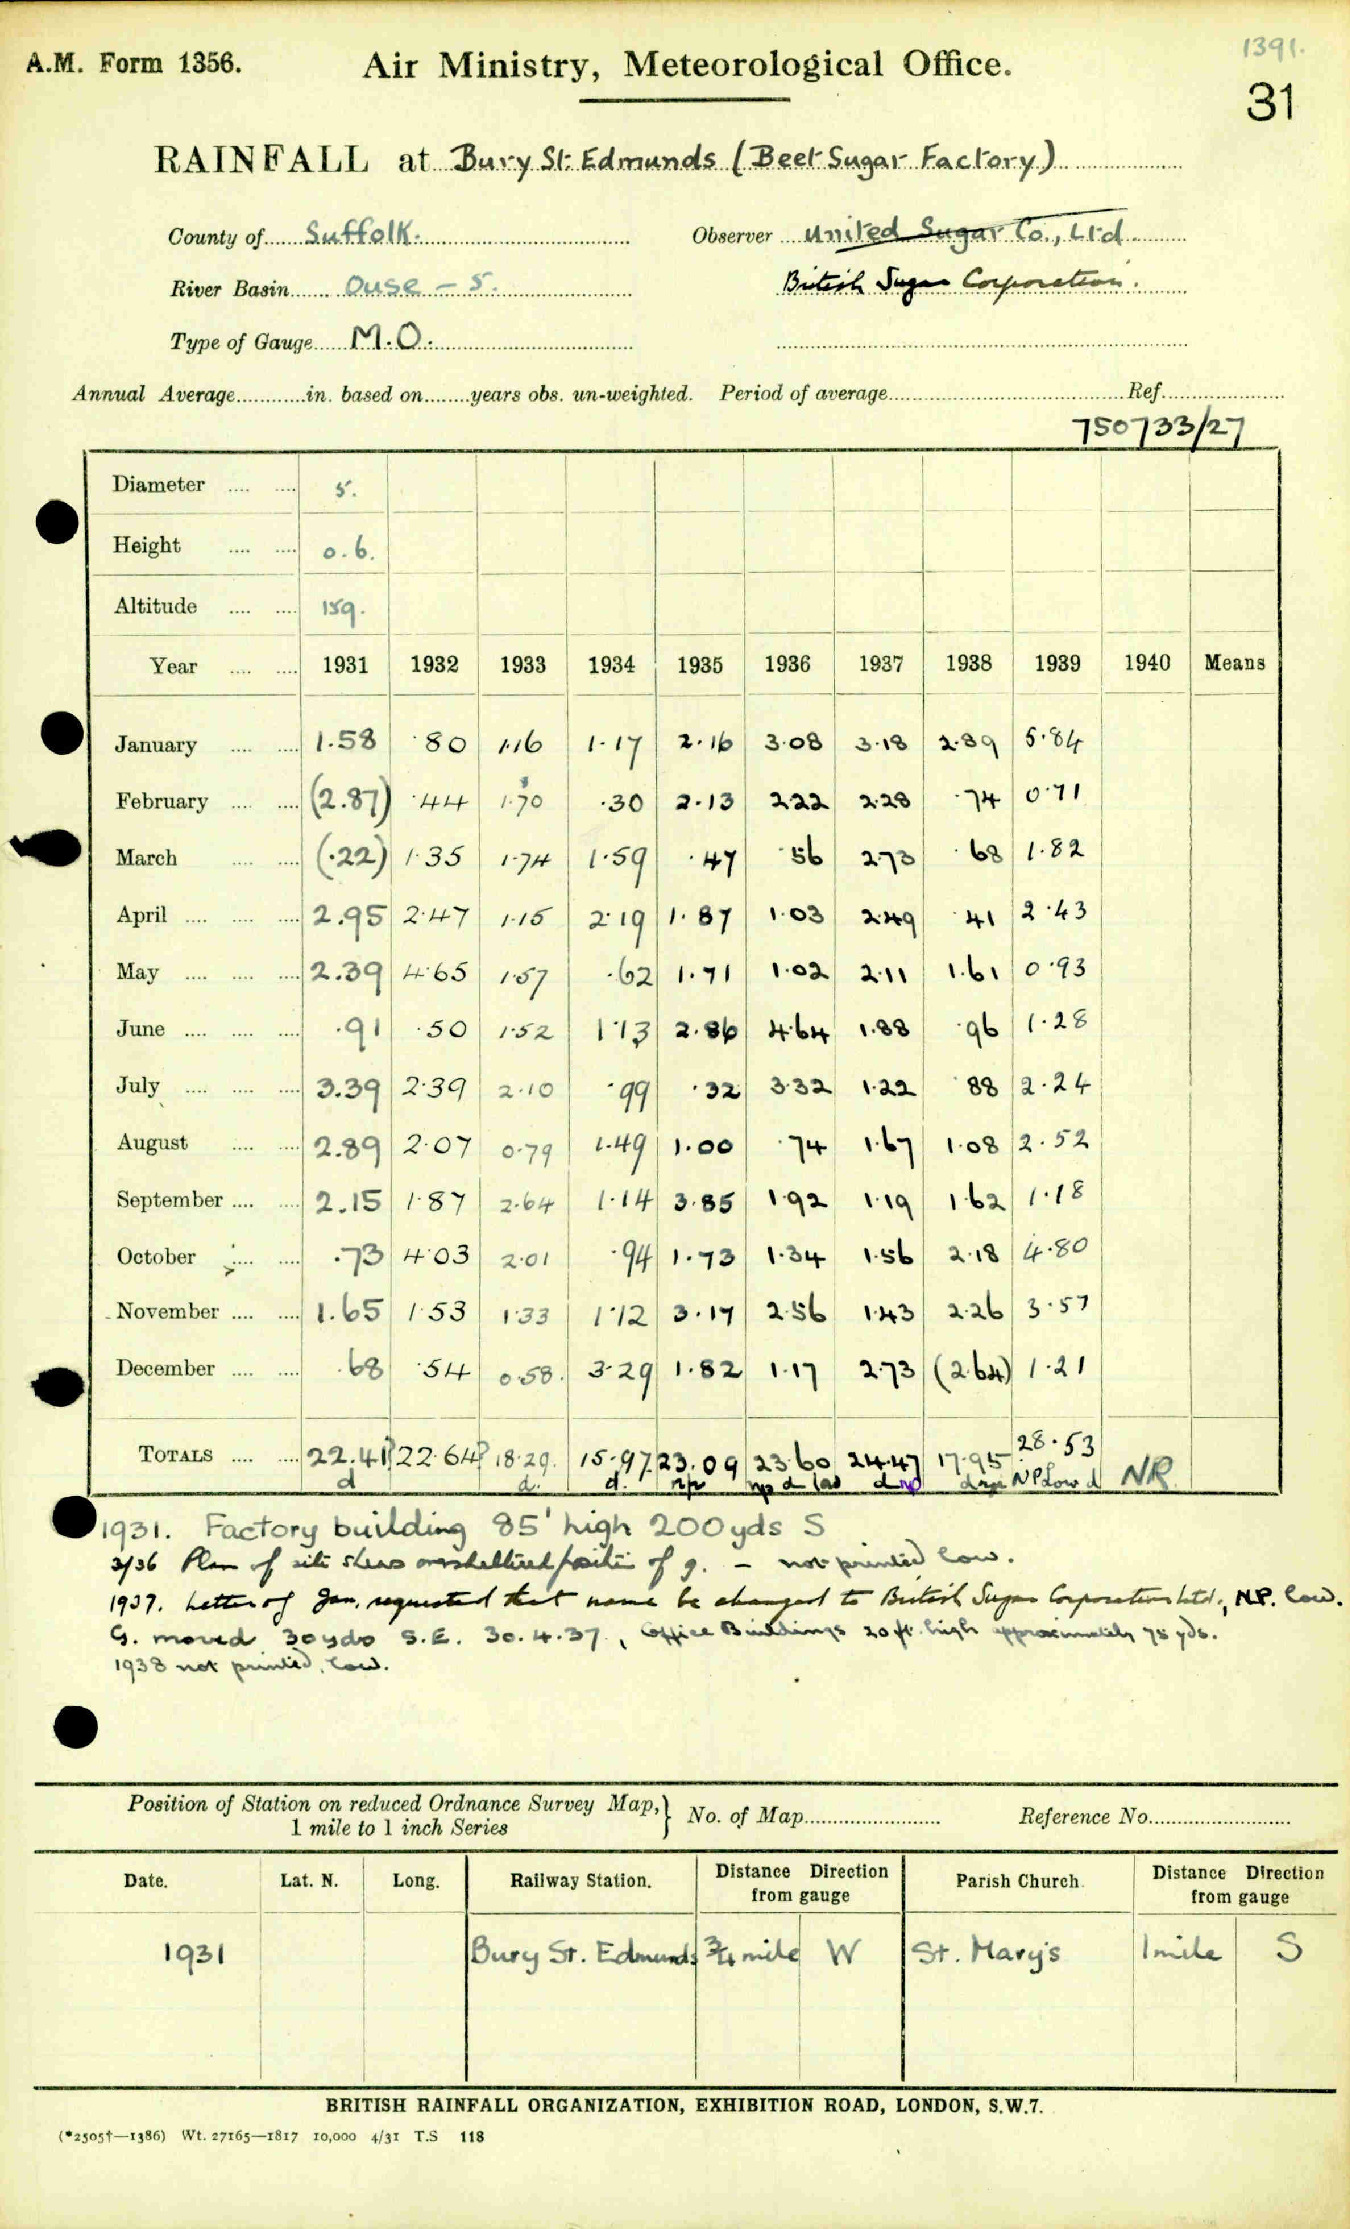 1391.
A.M. Form 1356. Air Ministry, Meteorological Office.
31
RAINFALL at Bury St. Edmunds (Beet Sugar Factory)
County of Suffolk. Observer United Sugar Co., Ltd
River Basin Ouse – 5. British Sugar Corporation.
Type of Gauge M.O.
Annual Average in. based on years obs. un-weighted. Period of average Ref.
750733/27
Diameter 5.
Height 0.6.
Altitude 159.
Year 1931 1932 1933 1934 1935 1936 1937 1938 1939 1940 Means
January 1.58 .80 1.16 1.17 2.16 3.08 3.18 2.89 5.84
February (2.87) .44 1.70 .30 2.13 2.22 2.28 .74 0.71
March (.22) 1.35 1.74 1.59 .47 .56 2.73 .68 1.82
April 2.95 2.47 1.15 2.19 1.87 1.03 2.49 .41 2.43
May 2.39 4.65 1.57 .62 1.71 1.02 2.11 1.61 0.93
June .91 .50 1.52 1.13 2.86 4.64 1.88 .96 1.28
July 3.39 2.39 2.10 .99 .32 3.32 1.22 .88 2.24
August 2.89 2.07 0.79 1.49 1.00 .74 1.67 1.08 2.52
September 2.15 1.87 2.64 1.14 3.85 1.92 1.19 1.62 1.18
October .73 4.03 2.01 .94 1.73 1.34 1.56 2.18 4.80
November 1.65 1.53 1.33 1.12 3.17 2.56 1.43 2.26 3.57
December .68 .54 0.58. 3.29 1.82 1.17 2.73 (2.64) 1.21
TOTALS 22.41? 22.64? 18.29. 15.97. 23.09 23.60 24.47 17.95 28.53
d d. d. np np d low d np d np NP Low d NR
1931. Factory building 85' high 200yds S
3/36 Plan of site shews position of g. – not printed low.
1937. Letter of Jan. requested that name be changed to British Sugar Corporation Ltd., N.P. low.
G. moved 30yds S.E. 30.4.37, Office Buildings 20 ft. high approximately 75 yds.
1938 not printed, low.
Position of Station on reduced Ordnance Survey Map,} No. of Map Reference No.
1 mile to 1 inch Series
Date. Lat. N. Long. Railway Station. Distance Direction from gauge Parish Church. Distance Direction from gauge
1931 Bury St. Edmunds 3/4 mile W St. Mary's 1 mile S
BRITISH RAINFALL ORGANIZATION, EXHIBITION ROAD, LONDON, S.W.7.
(*2505†—1386) Wt. 27165—1817 10,000 4/31 T.S 118